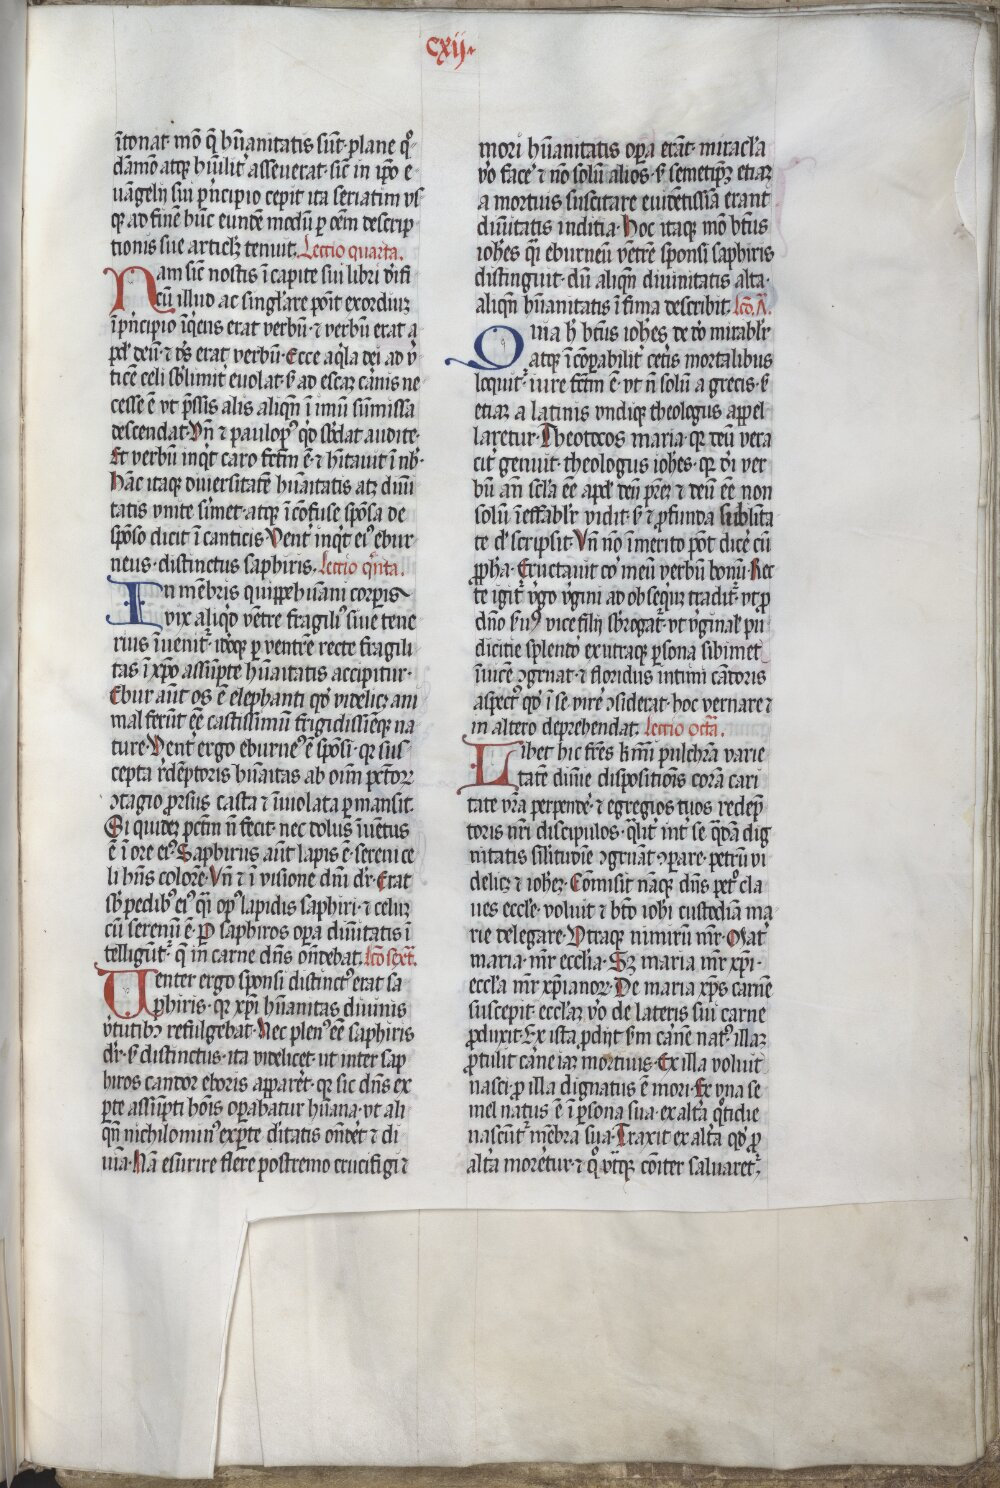 cxij.
ītonat. mō q̄ hūanitatis sūt. plane qͦ-
dāmō atqꝫ hūilit᷑ asseuerat. sic̄ in ip̄o e-
uāgelij sui p̄ncipio cepit ita seriatim vs
qꝫ ad finē hūc eundē modū ꝑ oēm descrip
tionis sue articlꝫ tenuit. Lectio quarta.
Nam sic̄ nostis ī capite sui libri
cū illud ac singlare pōit exordiuꝫ
īp̄ncipio īq̇ens erat verbū. ⁊ verbū erat a
pd̓ deū. ⁊ dꝰs erat verbū. Ecce aq̇la dei ad v̓
ticē celi sb̓limit᷑ euolat. sꝫ ad escaꝫ carnis ne
cesse ē vt p̄ssis alis aliqn̄ ī imū sūmissa
descendat. Vn̄ ⁊ paulopꝰ qd̓ sb̓dat audite.
Et verbū inq̇t caro fctm̄ ē. ⁊ hītauit ī nob̓.
Hāc itaqꝫ diuersitatē hūaitatis atꝫ diuī
tatis vnite simet. atqꝫ īcōfuse spōsa de
spōso dicit ī canticis. Vent᷑ inq̇t eiꝰ ebur-
neus. distinctus saphiris. Lectio q̇nta.
In mēbris quippe hūani corꝑis
vix aliq̇d vētre fragiliꝰ siue tene
rius īuenit᷑. idcqꝫ ꝑ ventrē recte fragili
tas ī xp̄o assūpte hūaitatis accipitur.
Ebur aūt os ē elephanti qd̓ videlicꝫ ani
mal ferūt eē castissimū frigidissieqꝫ na
ture. Vent᷑ ergo eburneꝰ ē spōsi. qꝛ sus-
cepta rd̓ēptoris hūaitas ab oīm pctoꝝ
ꝯtagio ꝓrsus casta ⁊ īuiolata ꝑmansit.
Si quidez pctm̄ n̄ fecit. nec dolus īuētus
ē ī ore eiꝰ. Saphirus aūt lapis ē. sereni ce
li hn̄s colorē. Vn̄ ⁊ ī visione dn̄i dr̄. Erat
sb̓ pedibꝰ eiꝰ q̇si opꝰ lapidis saphiri. ⁊ celuꝫ
cū serenū ē. P̱ saphiros oꝑa diuītatis ī
telligūt᷑. q̄ in carne dn̄s ōn̄debat. Lcō sexta.
Uenter ergo sponsi distinctꝰ erat sa
phiris. qꝛ xp̄i hūanitas diuinis
v̓tutibꝫ refulgebat. Nec plenꝰ eē saphiris
dr̄. sꝫ distinctus. ita videlicet. ut inter sap
hiros candor eboris apparēt. qꝛ sic dn̄s ex
ꝑte assūpti hoīs oꝑabatur hūana. vt ali
qn̄ nichilominꝰ exꝑte d̓itatis ōn̄dēt ⁊ di
uīa. Nā esurire flere postremo crucifigi ⁊
mori hūanitatis oꝑa erāt. miracl̓a
v̓o face᷑ ⁊ nō solū alios. sꝫ semetip̄ꝫ etiaꝫ
a mortuis suscitare euidētissia erant
diuītatis inditia. Hoc itaqꝫ mō btūs
ioh̄es q̇si eburneū vētrē sponsi saphiris
distinguit. dū aliqn̄ diuinitatis alta.
aliqn̄ hūanitatis īfima describit. Lcō. ā.
Quia h̄ btūs ioh̄es de dō mirabl̓r
atqꝫ īcōꝑabilit᷑ cet̓is mortalibus
loquit᷑. iure fctm̄ ē. vt n̄ solū a grecis. sꝫ
etiaꝫ a latinis vndiqꝫ theologus appel
laretur. Theotocos maria. qꝛ deū vera
cit᷑ genuit. theologus ioh̄es. qꝛ d̓i ver
bū an̄ scl̓a eē apd̓ deū p̄reꝫ ⁊ deū eē non
solū īeffabl̓r vidit. sꝫ ⁊ ꝓfunda sublīta
te d̓scripsit. Vn̄ nō īmerito pōt dice᷑ cū
ꝓph̄a. Eructauit cō meū verbū bonū. Rec
te igit᷑ v̓go v̓gini ad obsequꝫ tradit᷑. vt ꝓ
dn̄o s̓uꝰ vice filij sb̓rogat᷑. vt v̓ginal̓ pu
dicitie splendor exutraqꝫ ꝑsona sibimet
īuicē ꝯgruat. ⁊ floridus intimi cādoris
aspectꝰ qd̓ ī se vire᷑ ꝯsiderat. hoc vernare ⁊
in altero deprehendat. Lectio octā.
Libet hic fr̄es k̄mi pulchrā varie
tatē diuīe dispositiōis corā cari
tate vr̄a perpende᷑. ⁊ egregios duos redēp
toris nr̄i discipulos. q̇lit᷑ int᷑ se q̇dā dig
nitatis sil̓itudīe ꝯgruāt ꝯꝑare. petrū vi
delicꝫ ⁊ ioh̄eꝫ. Cōmisit nāqꝫ dn̄s petͦ cla
ues eccl̓e. voluit ⁊ btō ioh̄i custodiā ma
rie delegare. Vtraqꝫ nimirū mr̄. Mat᷑
maria. mr̄ eccl̓ia. Sꝫ maria mr̄ xp̄i.
eccl̓a mr̄ xp̄ianoꝝ. De maria xp̄s carnē
suscepit. eccl̓aꝫ v̓o de lateris sui carne
ꝓduxit. Ex ista ꝓdijt sm̄ carnē natꝰ. illaꝫ
ꝓtulit carne iaꝫ mortuus. Ex illa voluit
nasci. ꝓ illa dignatus ē mori. Ex vna se
mel natus ē ī ꝑsona sua. ex alt᷑a qͦtidie
nascūt᷑ mēbra sua. Traxit ex alt᷑a qd̓ ꝓ
alt᷑a moretur. ⁊ qͦ vt᷑qꝫ cōiter saluaret᷑.